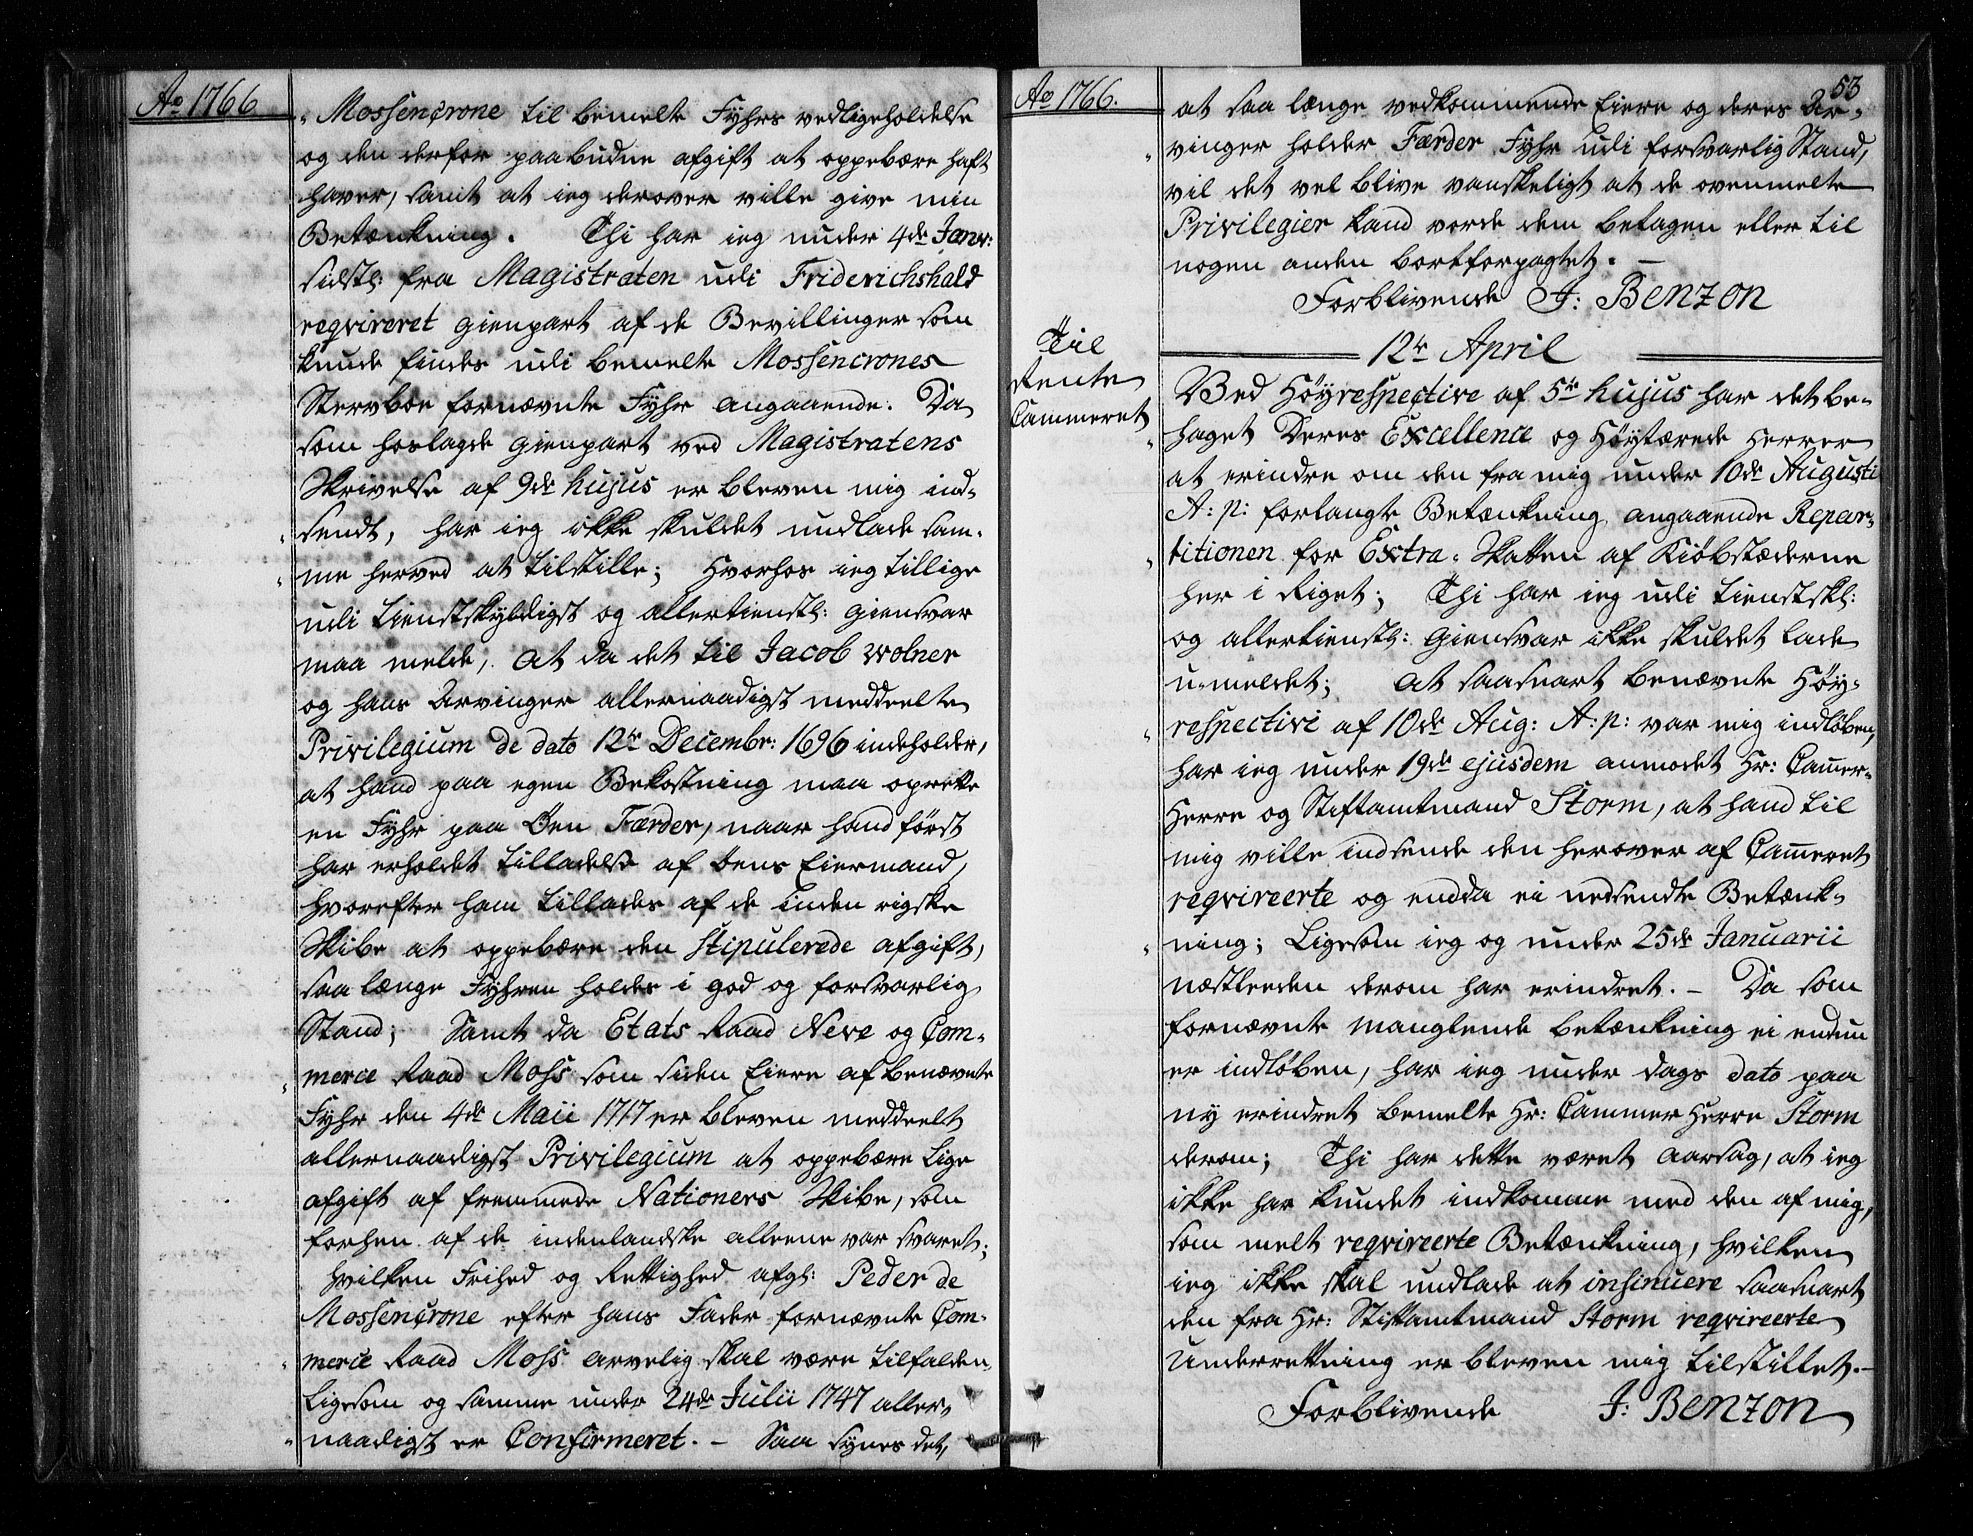 Ao 1766
Mossencrone til bemelte Fyhrs vedligeholdelse
og den derfor paabudne afgift at oppebære haft
haver, samt at ieg derover ville give min
Betænkning. Thi har ieg under 4de Janv:
sidstl: fra Magistraten udi Friderichshald
reqvireret gienpart af de Bevillinger som
kunde findes udi bemelte Mossencrones
Stervboe fornævnte Fyhr angaaende. Da
som hoslagde gienpart ved Magistratens
Skrivelse af 9de hujus er bleven mig ind-
sendt, har ieg ikke skuldet undlade sam-
me herved at tilstille; Hvorhos ieg tillige
udi tienstskyldigst og allertienstl: giensvar
maa melde, at da det til Jacob Wolner
og hans Arvinger allernaadigst meddeelte
Privilegium de dato 12te Decembr: 1696 indeholder,
at hand paa egen Bekostning maa oprette
en Fyhr paa Øen Færder, naar hand først
har erholdet tilladelse af dens Eiermand,
hvorefter ham tillades af de inden rigske
Skibe at oppebære den stipulerede afgift,
saa længe Fyhren holdes i god og forsvarlig
Stand; Samt da Etats Raad Neve og Com-
merce Raad Moss som siden Eiere af benævnte
Fyhr den 4de Maii 1717 er bleven meddeelt
allernaadigst Privilegium at oppebære lige
afgift af fremmede Nationers Skibe, som
forhen af de indenlandske alleene var svaret;
hvilken Frihed og Rettighed afgl: Peder de
Mossencrone efter hans Fader fornævnte Com-
merce Raad Moss arvelig skal være tilfalden,
ligesom og samme under 24de Julii 1747 aller-
naadigst er Confirmeret. – Saa synes det,
Ao 1766.
53
at saa længe vedkommende Eiere og deres Ar-
vinger holder Færder Fyhr udi forsvarlig Stand,
vil det vel blive vanskeligt at de ovenmelte
Privilegier kand vorde dem betagen eller til
nogen anden bortforpagtet. –
Forblivende J: Benzon
12te April
Til
Rente
Cammeret
Ved Høyrespective af 5te hujus har det be-
haget Deres Excellence og Høytærede Herrer
at erindre om den fra mig under 10de Augusti
A: p: forlangte Betænkning angaaende Repar-
titionen for Extra-Skatten af Kiøbstæderne
her i Riget; Thi har ieg udi tienstskl:
og allertienstl: giensvar ikke skuldet lade
u-meldet; at saasnart benævnte Høy-
respectivi af 10de Aug: A: p: var mig indløben,
har ieg under 19de ejusdem anmodet Hr: Cammer-
Herre og Stiftamtmand Storm, at hand til
mig ville indsende den herover af Cammeret
reqvireerte og endda ei nedsendte Betænk-
ning; Ligesom ieg og under 25de Januarii
næstleeden derom har erindret. – Da som
fornævnte manglende betænkning ei endnu
er indløben, har ieg under dags dato paa
ny erindret bemelte Hr: Cammer Herre Storm
derom; Thi har dette været aarsag, at ieg
ikke har kundet indkomme med den af mig,
som melt reqvireerte Betænkning, hvilken
ieg ikke skal undlade at insinuere saasnart
den fra Hr: Stiftamtmand Storm reqvireerte
Underretning er bleven mig tilstillet. –
Forblivende J: Benzon